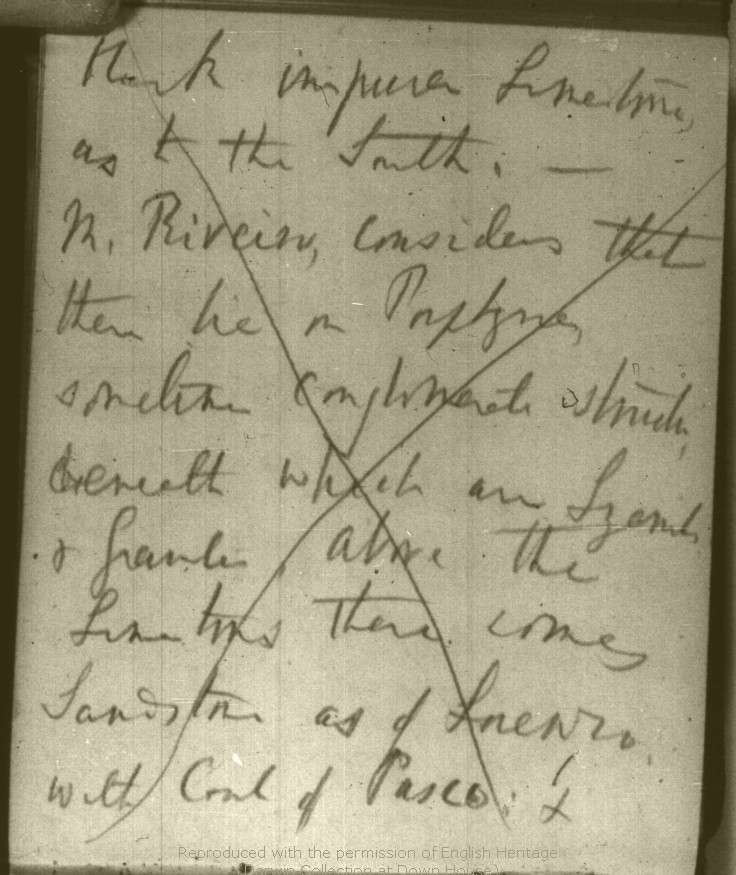 thick impure Limestone,
as to the South. —
M. Riveiro, considers that
these lie on Porphyries,
sometimes conglomerate
beneath which are Syenites
& Granites, above the
Limestones there comes
Sandstone as of Lorenzo.
with Coal of Pasco.
Reproduced with the permission of English Heritage
(Darwin Collection at Down House)